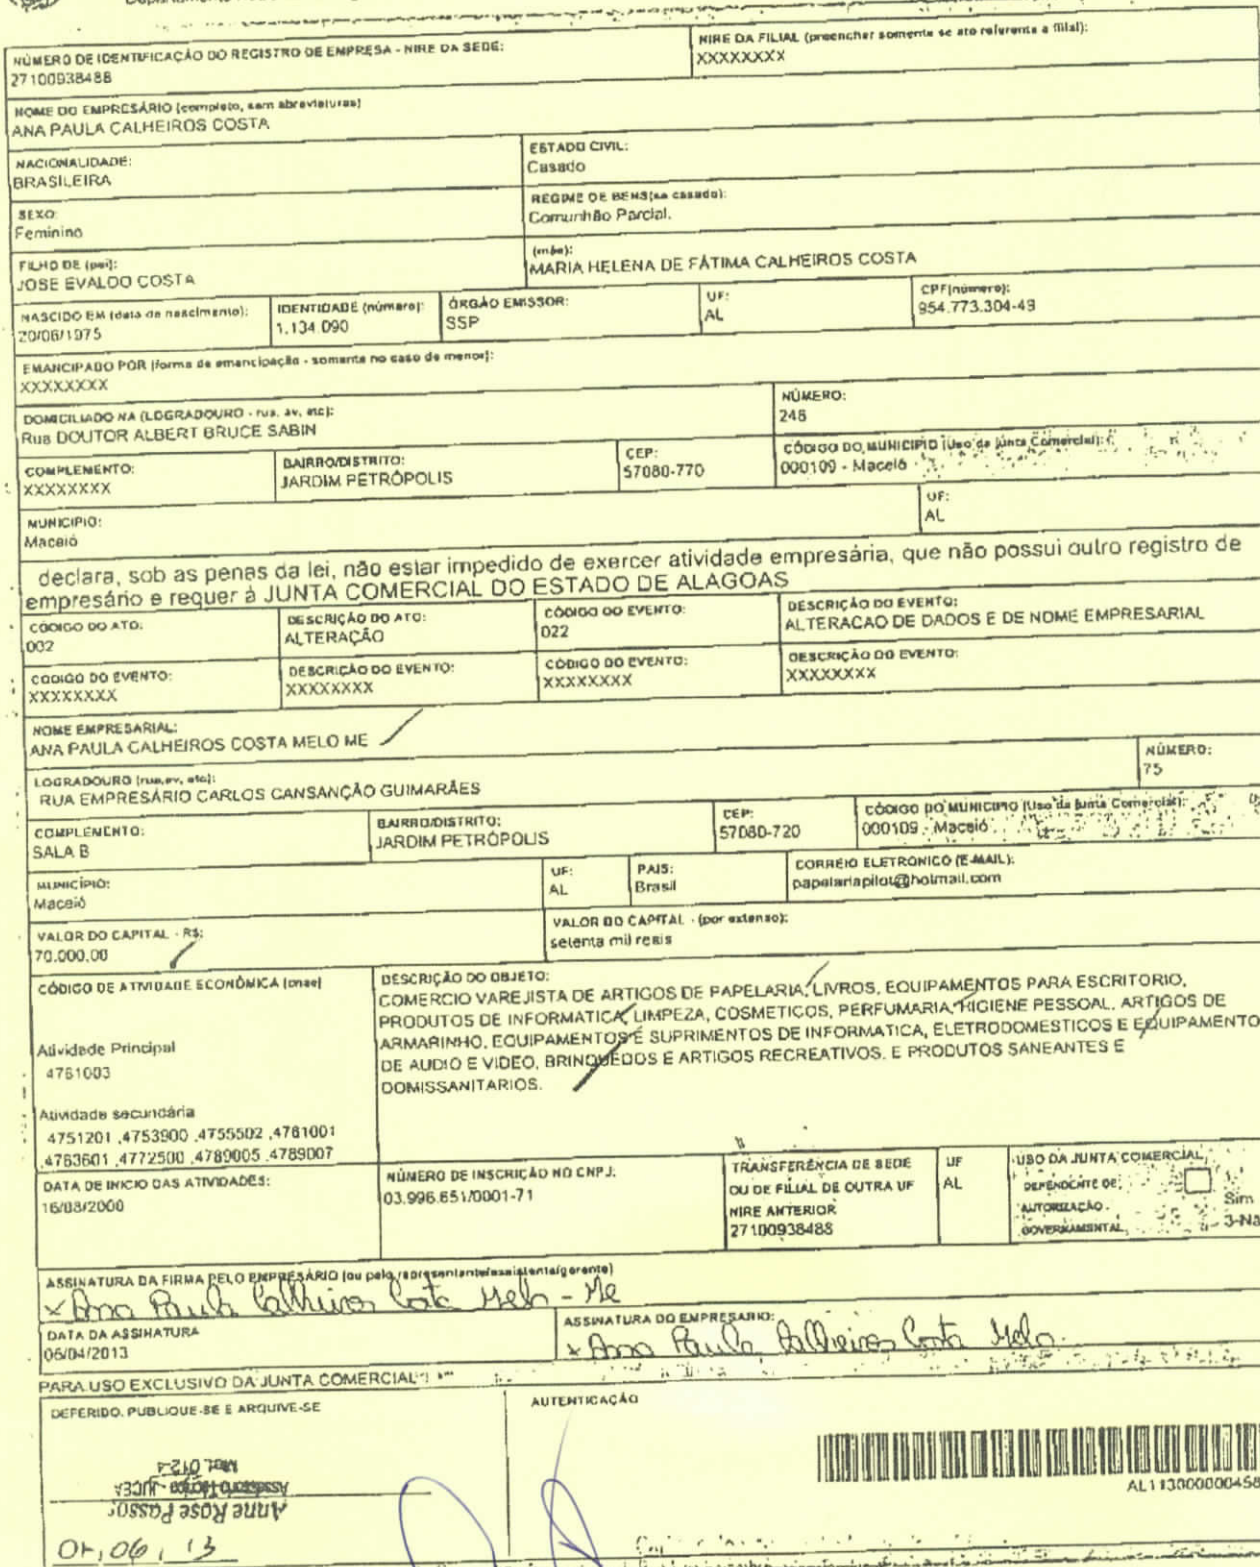 NÚMERO DE IDENTIFICAÇÃO DO REGISTRO DE EMPRESA - NIRE DA SEDE:
27100938488
NIRE DA FILIAL (preencher somente se ato referente a filial):
XXXXXXXX
NOME DO EMPRESÁRIO (completo, sem abreviaturas)
ANA PAULA CALHEIROS COSTA
NACIONALIDADE:
BRASILEIRA
ESTADO CIVIL:
Casado
SEXO:
Feminino
REGIME DE BENS(se casado):
Comunhão Parcial.
FILHO DE (pai):
JOSE EVALDO COSTA
(mãe):
MARIA HELENA DE FÁTIMA CALHEIROS COSTA
NASCIDO EM (data de nascimento):
20/06/1975
IDENTIDADE (número):
1.134.090
ÓRGÃO EMISSOR:
SSP
UF:
AL
CPF(número):
954.773.304-49
EMANCIPADO POR (forma de emancipação - somente no caso de menor):
XXXXXXXX
DOMICILIADO NA (LOGRADOURO - rua, av, etc):
Rua DOUTOR ALBERT BRUCE SABIN
NÚMERO:
248
COMPLEMENTO:
XXXXXXXX
BAIRRO/DISTRITO:
JARDIM PETRÓPOLIS
CEP:
57080-770
CÓDIGO DO MUNICIPIO (Uso da Junta Comercial):
000109 - Maceió
MUNICIPIO:
Maceió
UF:
AL
declara, sob as penas da lei, não estar impedido de exercer atividade empresária, que não possui outro registro de
empresário e requer à JUNTA COMERCIAL DO ESTADO DE ALAGOAS
CÓDIGO DO ATO:
002
DESCRIÇÃO DO ATO:
ALTERAÇÃO
CÓDIGO DO EVENTO:
022
DESCRIÇÃO DO EVENTO:
ALTERACAO DE DADOS E DE NOME EMPRESARIAL
CÓDIGO DO EVENTO:
XXXXXXXX
DESCRIÇÃO DO EVENTO:
XXXXXXXX
CÓDIGO DO EVENTO:
XXXXXXXX
DESCRIÇÃO DO EVENTO:
XXXXXXXX
NOME EMPRESARIAL:
ANA PAULA CALHEIROS COSTA MELO ME
LOGRADOURO (rua,av, etc):
RUA EMPRESÁRIO CARLOS CANSANÇÃO GUIMARÃES
NÚMERO:
75
COMPLEMENTO:
SALA B
BAIRRO/DISTRITO:
JARDIM PETRÓPOLIS
CEP:
57080-720
CÓDIGO DO MUNICIPIO (Uso da Junta Comercial):
000109 - Maceió
MUNICÍPIO:
Maceió
UF:
AL
PAIS:
Brasil
CORREIO ELETRONICO (E-MAIL):
papelariapilot@hotmail.com
VALOR DO CAPITAL - R$:
70.000,00
VALOR DO CAPITAL - (por extenso):
setenta mil reais
CÓDIGO DE ATIVIDADE ECONÔMICA (cnae)
Atividade Principal
4761003
Atividade secundária
4751201 ,4753900 ,4755502 ,4761001
,4763601 ,4772500 ,4789005 ,4789007
DESCRIÇÃO DO OBJETO:
COMERCIO VAREJISTA DE ARTIGOS DE PAPELARIA, LIVROS, EQUIPAMENTOS PARA ESCRITORIO,
PRODUTOS DE INFORMATICA, LIMPEZA, COSMETICOS, PERFUMARIA, HIGIENE PESSOAL, ARTIGOS DE
ARMARINHO, EQUIPAMENTOS E SUPRIMENTOS DE INFORMATICA, ELETRODOMESTICOS E EQUIPAMENTO
DE AUDIO E VIDEO, BRINQUEDOS E ARTIGOS RECREATIVOS. E PRODUTOS SANEANTES E
DOMISSANITARIOS.
DATA DE INICIO DAS ATIVIDADES:
16/08/2000
NÚMERO DE INSCRIÇÃO NO CNPJ:
03.996.651/0001-71
TRANSFERÊNCIA DE SEDE
OU DE FILIAL DE OUTRA UF
NIRE ANTERIOR
27100938488
UF
AL
USO DA JUNTA COMERCIAL
DEPENDENTE DE
AUTORIZAÇÃO
GOVERNAMENTAL
Sim
3-Nã
ASSINATURA DA FIRMA PELO EMPRESÁRIO (ou pelo representante/assistente/gerente)
x Ana Paula Calheiros Costa Melo - Me
DATA DA ASSINATURA
06/04/2013
ASSINATURA DO EMPRESARIO:
x Ana Paula Calheiros Costa Melo
PARA USO EXCLUSIVO DA JUNTA COMERCIAL
DEFERIDO. PUBLIQUE-SE E ARQUIVE-SE
AUTENTICAÇÃO
Mat. 012-4
Assessora Técnica - JUCEA
Anne Rose Passos
AL113000000458